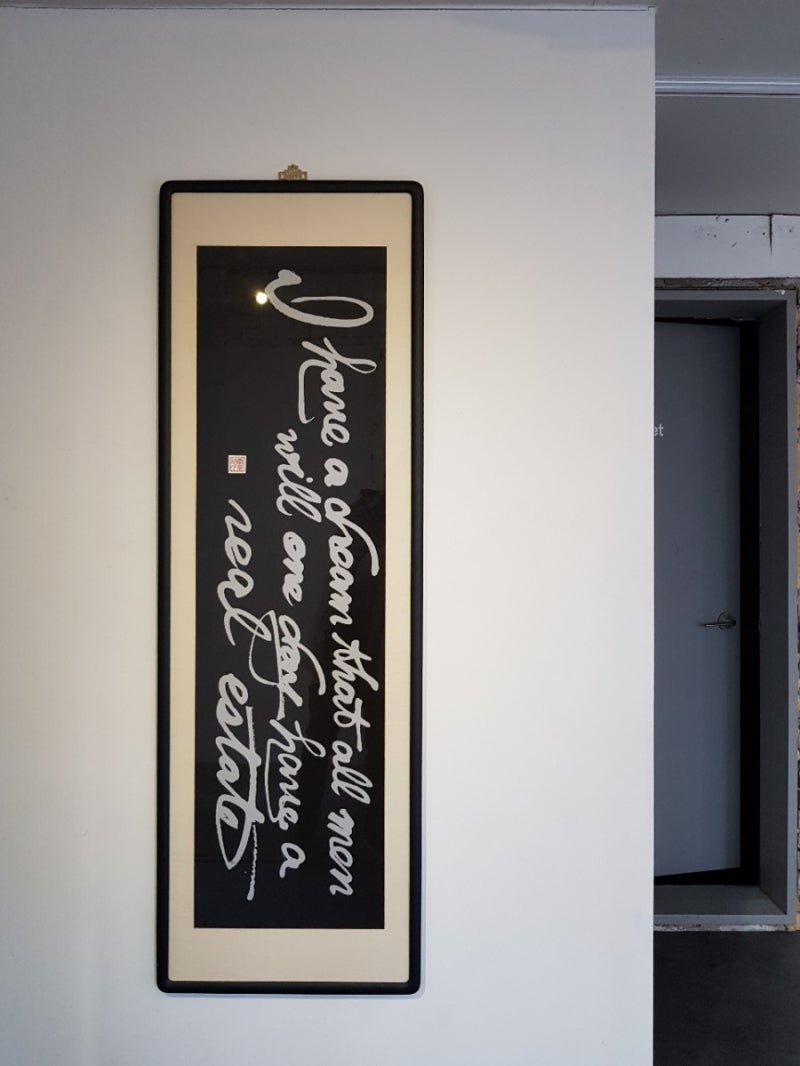 I have a dream that all men
will one day have a
real estate
et